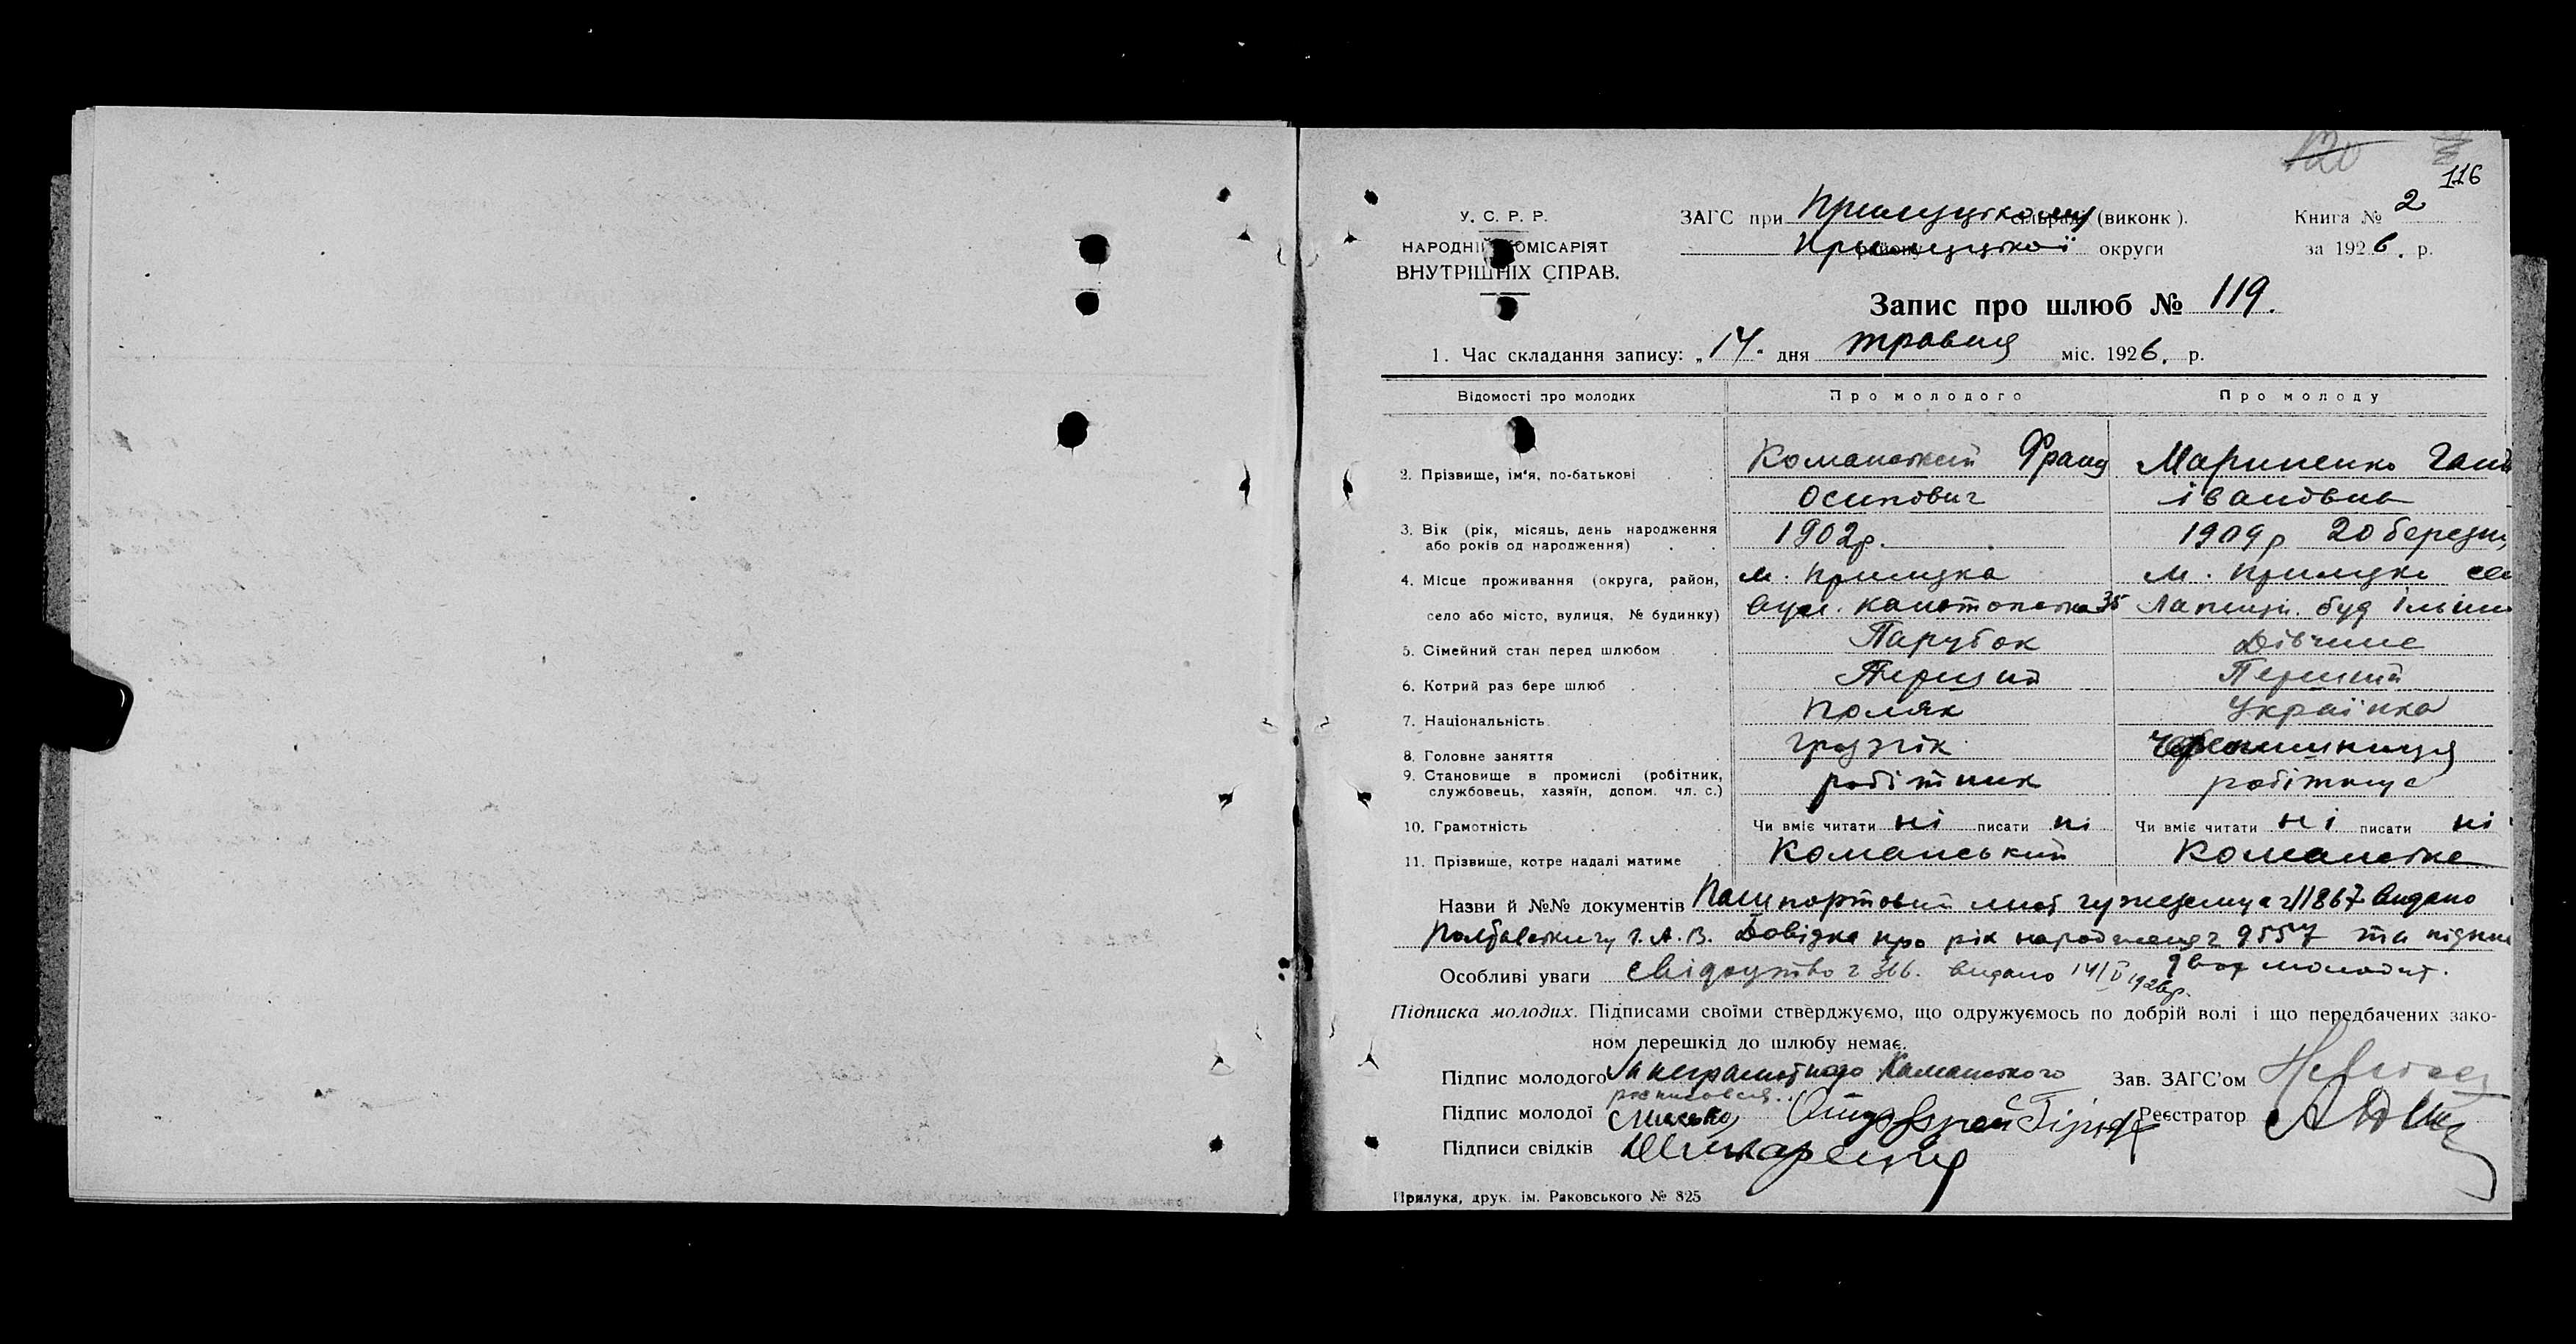 120
116
У. С. Р. Р.
НАРОДНІЙ КОМІСАРІЯТ
ВНУТРІШНІХ СПРАВ.
ЗАГС при Прилуцькому сільраді (виконк).
району Прилуцької округи
Книга № 2
за 1926. р.
Запис про шлюб № 119.
1. Час складання запису: „14" дня травня міс. 1926. р.
Відомості про молодих
Про молодого
Про молоду
2. Прізвище, ім'я, по-батькові
Команський Франц
Осипович
Мариненко Ганн
Івановна
3. Вік (рік, місяць, день народження
або років од народження)
1902р.
1909р 20 березня
4. Місце проживання (округа, район,
село або місто, вулиця, № будинку)
м. Прилука
вул. Конотопська 35
м. Прилука
буд
5. Сімейний стан перед шлюбом
Парубок
Дівчина
6. Котрий раз бере шлюб
Перший
Перший
7. Національність
Поляк
Українка
8. Головне заняття
грузчік
9. Становище в промислі (робітник,
службовець, хазяїн, допом. чл. с.)
робітник
робітниця
10. Грамотність
Чи вміє читати ні писати ні
Чи вміє читати ні писати ні
11. Прізвище, котре надалі матиме
Команський
Команська
Назви й №№ документів Пашпортовий лист чужеземця 11867 видано
Полтавському Г.А.В. Довідка про рік народження 9557 та підписка
двох молодих.
Особливі уваги свідоцтво 366. видано 14/V 1926р.
Підписка молодих. Підписами своїми стверджуємо, що одружуємось по добрій волі і що передбачених зако-
ном перешкід до шлюбу немає.
Підпис молодого За неграмотного Команського
росписовся
Зав. ЗАГС'ом
Підпис молодої
Реєстратор
Підписи свідків
Прилука, друк. ім. Раковського № 825